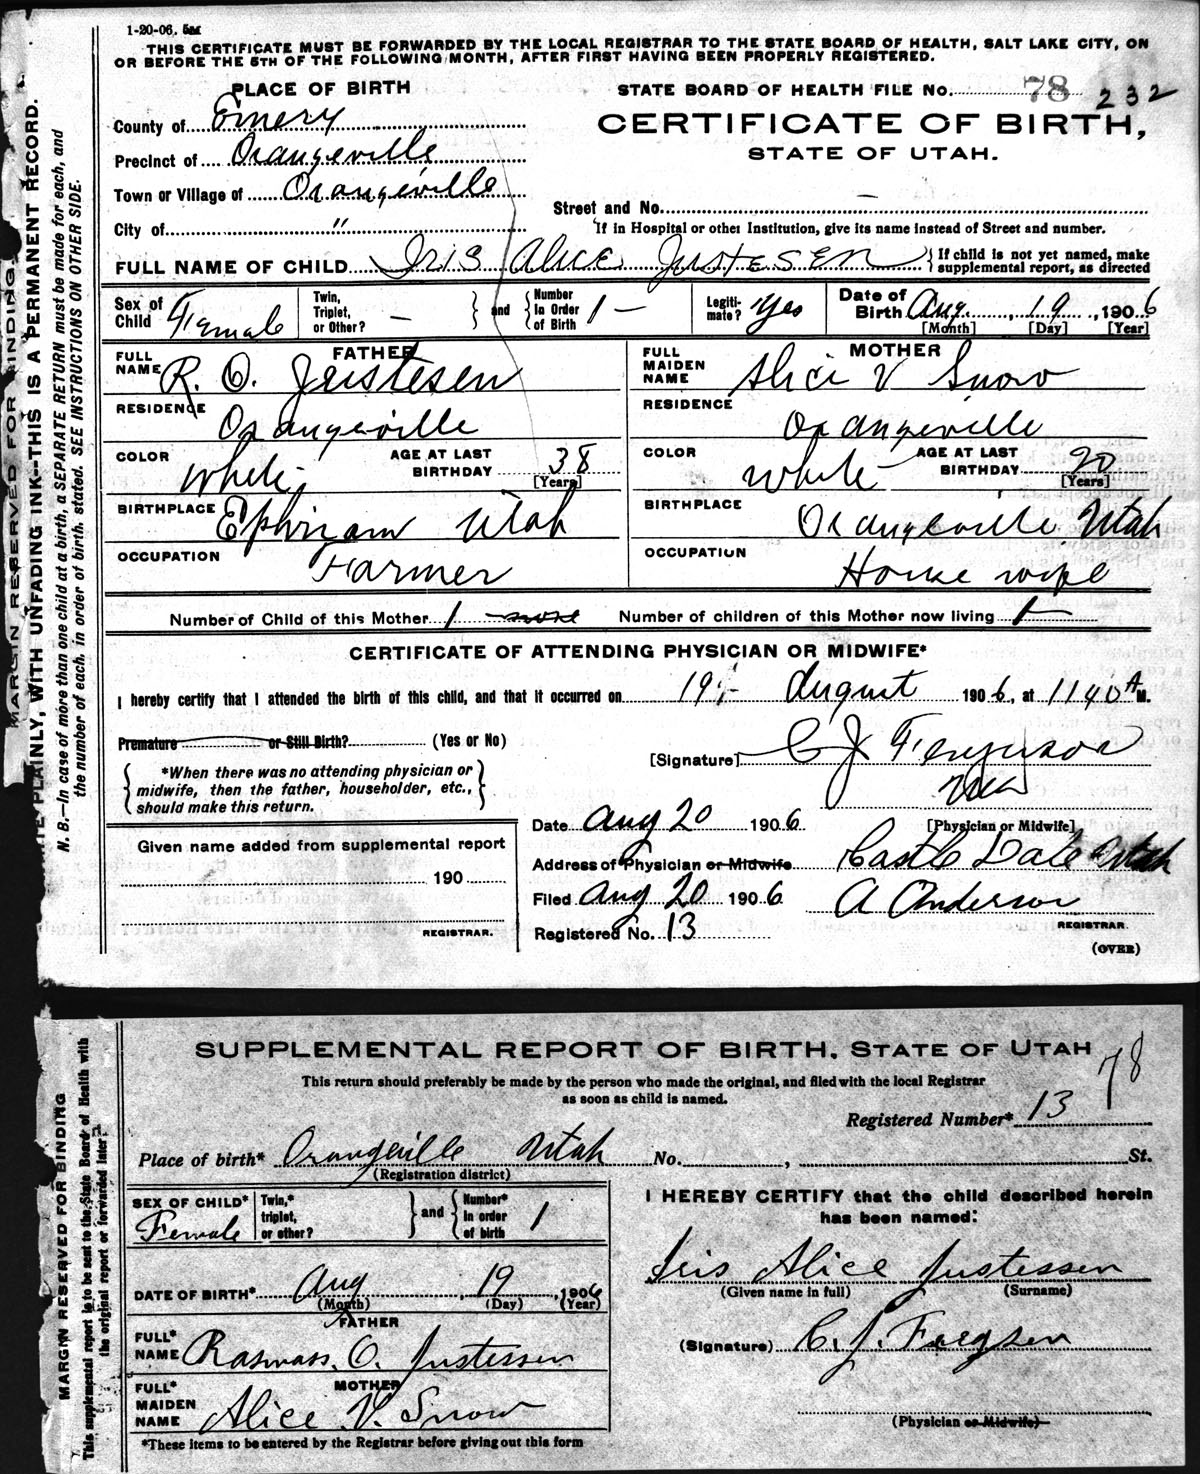 1-20-06. 5M
THIS CERTIFICATE MUST BE FORWARDED BY THE LOCAL REGISTRAR TO THE STATE BOARD OF HEALTH, SALT LAKE CITY, ON
OR BEFORE THE 5TH OF THE FOLLOWING MONTH, AFTER FIRST HAVING BEEN PROPERLY REGISTERED.
MARGIN RESERVED FOR BINDING.
PLAINLY, WITH UNFADING INK--THIS IS A PERMANENT RECORD.
N. B.—In case of more than one child at a birth, a SEPARATE RETURN must be made for each, and
the number of each, in order of birth, stated. SEE INSTRUCTIONS ON OTHER SIDE.
PLACE OF BIRTH
County of Emery
Precinct of Orangeville
Town or Village of Orangeville
City of "
STATE BOARD OF HEALTH FILE No. 78 232
CERTIFICATE OF BIRTH,
STATE OF UTAH.
Street and No. —
If in Hospital or other Institution, give its name instead of Street and number.
FULL NAME OF CHILD Iris Alice Justesen { If child is not yet named, make
supplemental report, as directed
Sex of Child Female
Twin, Triplet, or Other? — and Number In Order of Birth 1 —
Legitimate? Yes
Date of Birth Aug. 19, 1906
[Month] [Day] [Year]
FATHER
FULL NAME R. O. Justesen
RESIDENCE Orangeville
COLOR White AGE AT LAST BIRTHDAY 38
[Years]
BIRTHPLACE Ephriam Utah
OCCUPATION Farmer
MOTHER
FULL MAIDEN NAME Alice V Snow
RESIDENCE Orangeville
COLOR White AGE AT LAST BIRTHDAY 20
[Years]
BIRTHPLACE Orangeville Utah
OCCUPATION House wife
Number of Child of this Mother 1 Number of children of this Mother now living 1
CERTIFICATE OF ATTENDING PHYSICIAN OR MIDWIFE*
I hereby certify that I attended the birth of this child, and that it occurred on 19 August 1906, at 1140 A M.
Premature or Still Birth? (Yes or No)
[Signature] C J Ferguson
[Physician or Midwife]
*When there was no attending physician or
midwife, then the father, householder, etc.,
should make this return.
Given name added from supplemental report
190
REGISTRAR.
Date Aug 20 1906
Address of Physician or Midwife Castle Dale Utah
Filed Aug 20 1906 A Anderson
REGISTRAR
Registered No. 13
(OVER)
MARGIN RESERVED FOR BINDING
This supplemental report is to be sent to the State Board of Health with
the original report or forwarded later.
SUPPLEMENTAL REPORT OF BIRTH, STATE OF UTAH
78
This return should preferably be made by the person who made the original, and filed with the local Registrar
as soon as child is named.
Registered Number* 13
Place of birth* Orangeville Utah No. , St.
(Registration district)
SEX OF CHILD* Female
Twin,* triplet, or other? and Number* In order of birth 1
DATE OF BIRTH* Aug, 19, 1906
(Month) (Day) (Year)
FATHER
FULL* NAME Rasmass. O. Justessen
MOTHER
FULL* MAIDEN NAME Alice V. Snow
*These items to be entered by the Registrar before giving out this form
I HEREBY CERTIFY that the child described herein
has been named:
Iris Alice Justessen
(Given name in full) (Surname)
(Signature) C. J. Fuegsen
(Physician or Midwife)